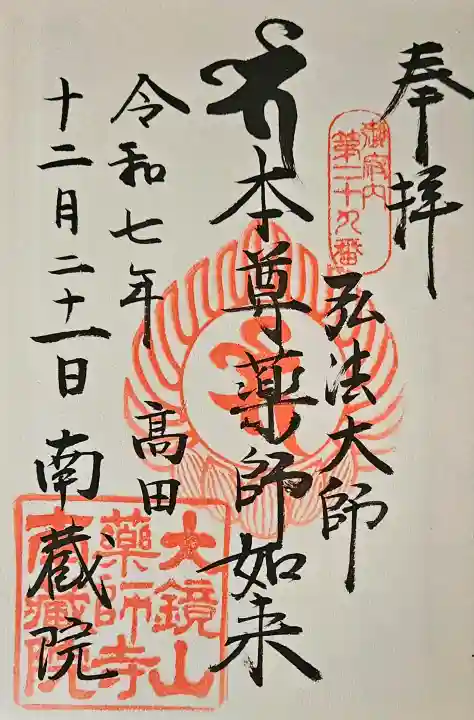 奉拝
御府内
第二十九番
弘法大師
本尊薬師如来
令和七年
高田
十二月二十一日
南蔵院
大鏡山
薬師寺
南藏院